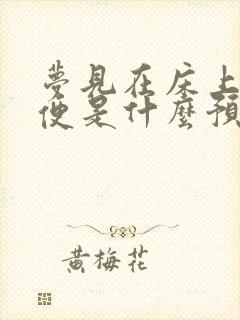 夢見在床上
便是什麼預
黃梅花